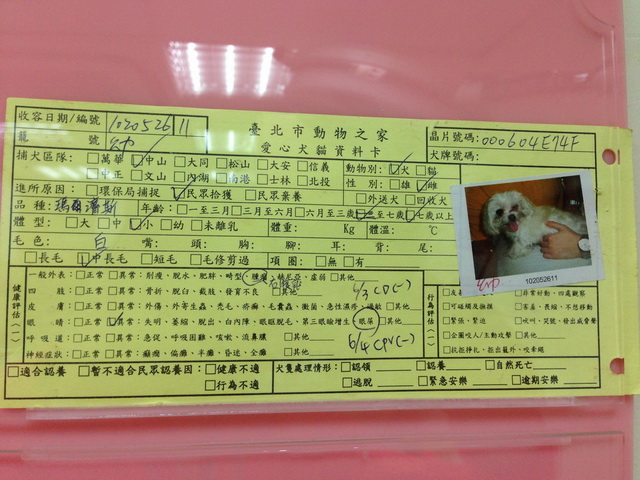 收容日期/編號 102052611
臺北市動物之家
晶片號碼:000604E74F
籠 號
愛心犬貓資料卡
犬牌號碼:
捕犬區隊: □萬華 ☑中山 □大同 □松山 □大安 □信義 動物別: ☑犬 □貓
□中正 □文山 □內湖 □南港 □士林 □北投 性 別: □雄 ☑雌
進所原因: □環保局捕捉 ☑民眾拾獲 □民眾棄養 □外送犬 □回收犬
品 種: 瑪爾濟斯 年齡: □一至三月 □三月至六月 □六月至三歲 ☑三至七歲 □七歲以上
體 型: □大 □中 ☑小 □幼 □未離乳 體重: Kg 體溫: ℃
毛 色: 白 嘴: 頭: 胸: 腳: 耳: 背: 尾:
□長毛 ☑中長毛 □短毛 □毛修剪過 項圈: □無 □有
健康評估(一)
一般外表: □正常 □異常: 削瘦、脫水、肥胖、畸型、腫瘤、赫尼亞、虛弱 □其他
四 肢: □正常 □異常: 骨折、跛白、截肢、發育不良 □其他
6/3 CD(-)
皮 膚: □正常 □異常: 外傷、外寄生蟲、禿毛、疥癬、毛囊蟲、黴菌、急性濕疹、過敏 □其他
眼 睛: □正常 ☑異常: 失明、萎縮、脫出、白內障、眼瞼脫毛、第三眼瞼增生、眼屎 □其他
呼 吸 道: □正常 □異常: 急促、呼吸困難、咳嗽、流鼻膿 □其他
6/4 CPV(-)
神經症狀: □正常 □異常: 癲癇、偏癱、半癱、昏迷、全癱 □其他
行為評估(一)
□非常好動、四處觀察
□可碰觸及撫摸 □害羞、畏縮、不想移動
□緊張、緊迫 □吠叫、哭號、發出威脅聲
□企圖咬人/主動攻擊 □其他
□抗拒掙扎、拒出籠外、咬牽繩
102052611
□適合認養 □暫不適合民眾認養因: □健康不適
□行為不適
犬隻處理情形: □認領 □認養 □自然死亡
□逃脫 □緊急安樂 □逾期安樂